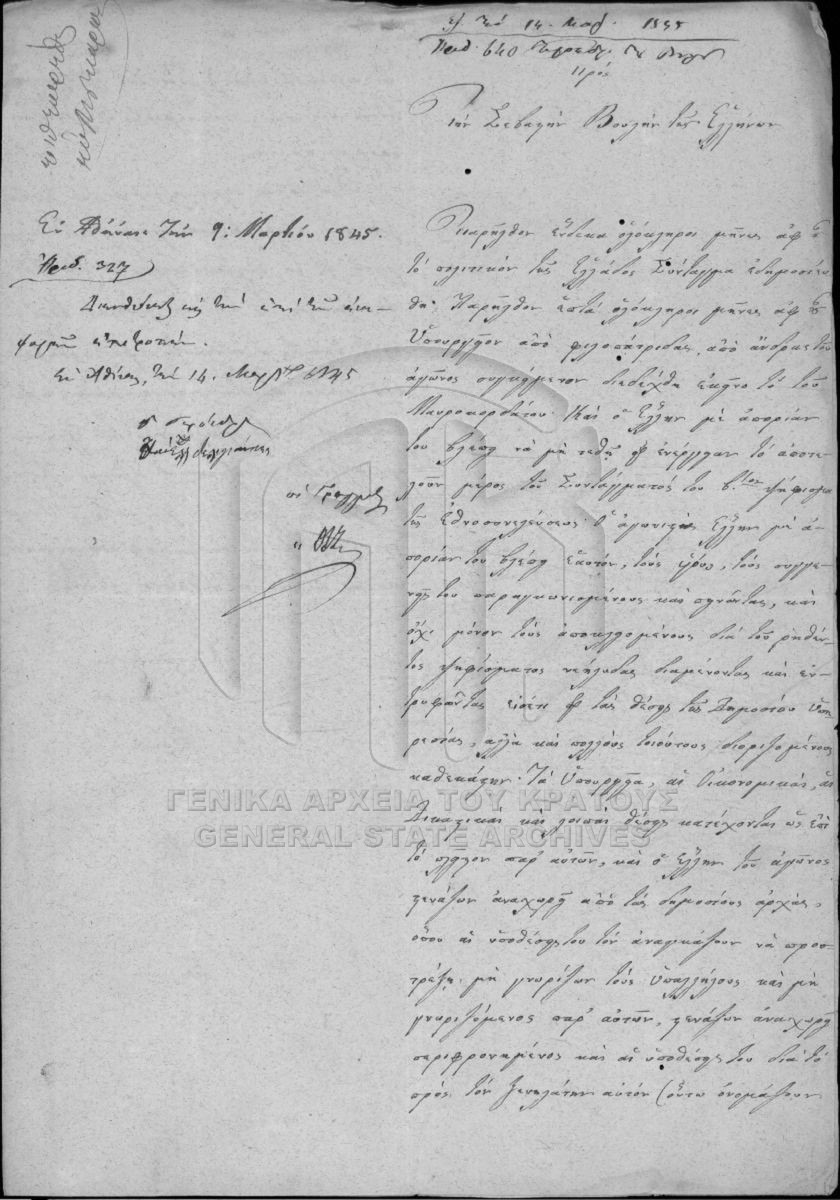 14 Μαρ. 1845
Αριθ. 640
Πρὸς
Τὴν Σεβαστὴν Βουλὴν τῶν Ἑλλήνων
Ἐν Ἀθήναις τὴν 9: Μαρτίου 1845.
Ἀριθ. 327
Διευθύνεται εἰς τὴν ἐπὶ τῶν ἀνα-
φορῶν ἐπιτροπήν.
Ἐν Ἀθήναις, τὴν 14 Μαρτ. 1845
Παρῆλθον ἕνδεκα ὁλόκληροι μῆνες ἀφ' οὗ
τὸ πολιτικὸν τῆς Ἑλλάδος Σύνταγμα ἐδημοσιεύ-
θη. Παρῆλθον ἑπτὰ ὁλόκληροι μῆνες ἀφ' οὗ
Ὑπουργεῖον ἀπὸ φιλοπάτριδας, ἀπὸ ἄνδρας τοῦ
ἀγῶνος συγκείμενον διεδέχθη ἐκεῖνο τὸ τοῦ
Μαυροκορδάτου. Καὶ ὁ Ἕλλην μὲ ἀπορίαν
του βλέπει νὰ μὴ τεθῇ εἰς ἐνέργειαν τὸ ἀποτε-
λοῦν μέρος τοῦ Συντάγματός του β.ον ψήφισμα
τῆς Ἐθνοσυνελεύσεως. Ὁ ἀγωνιστὴς Ἕλλην μὲ ἀ-
πορίαν του βλέπει ἑαυτόν, τοὺς υἱούς, τοὺς συγγε-
νεῖς του παραγκωνισμένους καὶ πεινῶντας, καὶ
ὄχι μόνον τοὺς ἀποκλειομένους διὰ τοῦ ῥηθέν-
τος ψηφίσματος νεήλυδας διαμένοντας καὶ ἐν-
τρυφῶντας εἰσέτι εἰς τὰς θέσεις τῆς Δημοσίου Ὑπη-
ρεσίας, ἀλλὰ καὶ πολλοὺς τοιούτους διοριζομένους
καθεκάστην. Τὰ Ὑπουργεῖα, αἱ Οἰκονομικαί, αἱ
Δικαστικαὶ καὶ λοιπαὶ θέσεις κατέχονται ὡς ἐπὶ
τὸ πλεῖστον παρ' αὐτῶν, καὶ ὁ Ἕλλην τοῦ ἀγῶνος
στενάζων ἀναχωρεῖ ἀπὸ τὰς δημοσίους ἀρχάς,
ὅπου αἱ ὑποθέσεις του τὸν ἀναγκάζουν νὰ προσ-
τρέξῃ μὴ γνωρίζων τοὺς ὑπαλλήλους καὶ μὴ
γνωριζόμενος παρ' αὐτῶν, στενάζων ἀναχωρεῖ
περιφρονημένος καὶ αἱ ὑποθέσεις του διὰ τὸ
πρὸς τὸν ξενηλάτην αὐτὸν (οὕτω ὀνομάζουν
ΓΕΝΙΚΑ ΑΡΧΕΙΑ ΤΟΥ ΚΡΑΤΟΥΣ
GENERAL STATE ARCHIVES